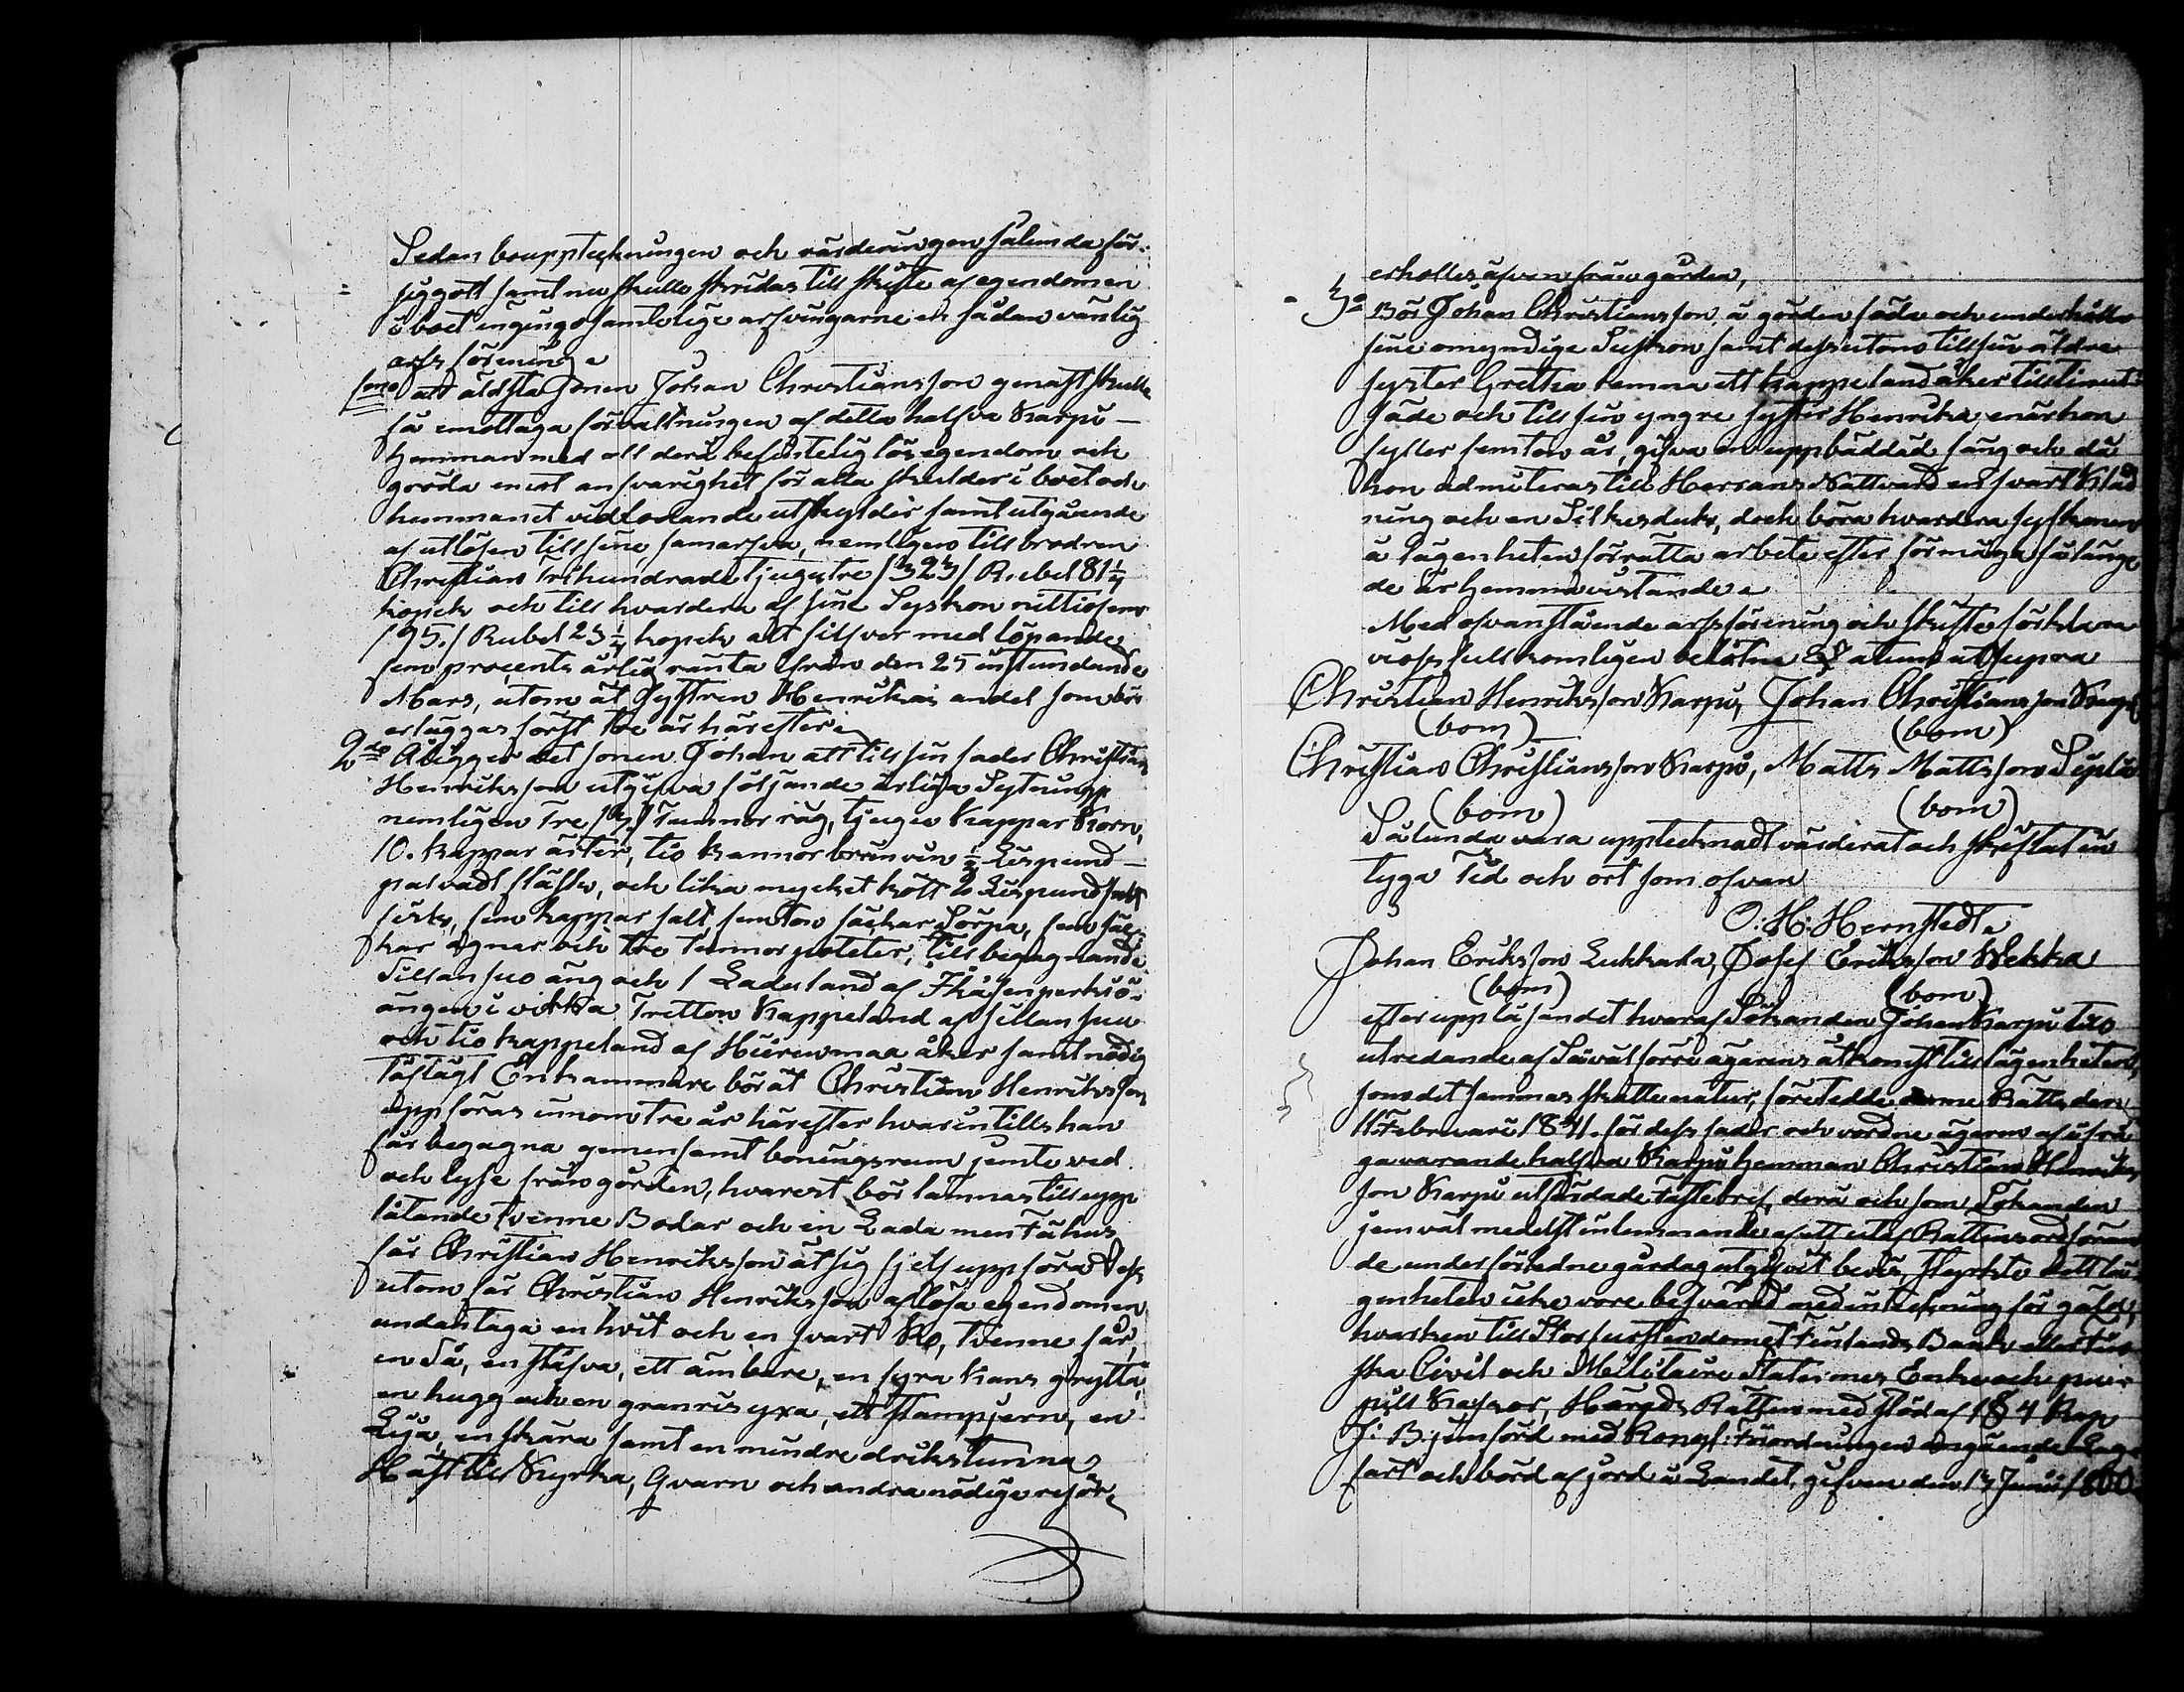 Sedan bouppteckningen och värderingen sålunda för-
siggått samt nu skulle skridas till skifte af egendomen
i boet ingingo samtelige arfvingarne en sådan vänlig
arfs förening.
1mo att äldsta Sonen Johan Christiansson genast skulle
få emottaga förvaltningen af detta halfva Karpi
hemman med all derå befintelig lös egendom och
gröda emot ansvarighet för alla skulder i boet och
hemmanet vidlådande utskylder samt utgående
af utlösen till sine samarfva, nemligen till brodren
Christian Trehundrade tjugutre /323/ Rubel 81 1/4
kopek och till hvardera af sine Syskon nittiofem
/95./ Rubel 23 1/4 kopek allt silfver med löpande
fem procents årlig ränta ifrån den 25 instundande
Mars, utom åt Systren Henrikas andel som bör
erläggas först tre år härefter.
2do Åligger det sonen Johan att till sin fader Christian
Henriksson utgifva följande årliga Sytning
nemligen Tre /3/ Tunnor råg, tjugu Kappar Korn,
10. kappar ärter, tio kannor brännvin 1/2 Lispund
fläsk, och lika mycket kött 2 Lispund salt
fisk, fem kappar salt, femton säckar Sörpa, fem säc-
kar agnar och tre tunnor poteter, till begagnande
Sillansuo äng och 1 Ladesland af
ängen i Tretton Kappeland af Sillansuu
och tio kappeland af åker samt nödig
En kammare bör åt Christian Henriksson
uppföras innom tre år härefter hvarintills han
får begagna gemensamt boningsrum jemte ved
och lyse från gården, hvarest bör lämnas till upp
låtande tvenne Bodar och en Lada men Fähus
får Christian Henriksson åt sig sjelf uppföra Dess
utom får Christian Henriksson af lösa egendomen
undantaga en hvit och en svart Ko, tvenne får,
en Så, en ett ämbare, en fyra Kans grytta,
en hugg och en granris yxa, ett stampjern, en
Lija, en skära samt en mindre drikstunna
Häst till Kyrka, Qvarn och andra nödige resor
erhålles äfven från gården,
3o Bör Johan Christiansson å gården föda och underhålla
sine omyndige Syskon samt dessutom till sin äldre
syster Gretha lemna ett kappeland åker till linut-
säde och till sin yngre syster Henrika, enär hon
fyller femton år, gifva en uppbäddad säng och då
hon admitteras till Herrans Nattvard en svart Kläd
ning och en Silkesduk, doch böra hvardera syskonen
å lägenheten förrätta arbete efter förmåga så länge
de är hemmavistande.
Med ofvanstående arfsförening och skifte förklara
vi oss fullkomligen belåtne Datum ut supra
Christian Henriksson Karpi, Johan Christiansson Karpi
(bom) (bom)
Christian Christiansson Karpi, Matts Mattsson
(bom) (bom)
Sålunda vara upptecknadt värderat och skiftat in
tyga Tid och ort som ofvan
O. H. Hernstedt.
Johan Eriksson Lukkala, Josef Eriksson Wekka
(bom) (bom)
efter uppläsandet hvaraf Sökanden Johan Karpi till
utredande af Såväl förre ägarens åtkomst till lägenheten
som det sammas skatte natur, företedde denne Rätts den
11 Februari 1841. för dess fader och vordne ägaren af ifrå
gavarande halfva Karpi hemman Christian Henriks
son Karpi utfärdade Fastebref, derå och som Sökanden
jemväl medelst inlemnande af ett utaf Rättens ordföran
de under förledne gårdag utgifvit bevis, styrkte att lä
genheten icke vore besvärad med inteckning för gäld,
hvarken till Storfurstendomet Finlands Bank eller Fin
ska Civil och Militaire Staternes Enke och pu
pill Kassor, Härads Rätten med stöd af 1 § 4 Kap
J: B: jemförd med Kongl: Förordningen angående Lag
fart och börd af jord å Landet, gifven den 13 Junii 1800